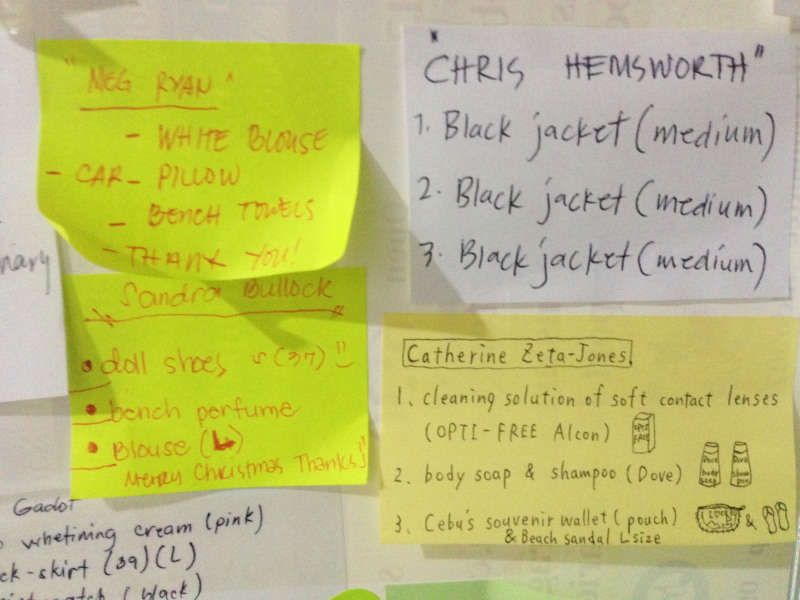 "MEG RYAN"
- WHITE BLOUSE
- CAR - PILLOW
- BENCH TOWELS
- THANK YOU!
"CHRIS HEMSWORTH"
1. Black jacket (medium)
2. Black jacket (medium)
3. Black jacket (medium)
Sandra Bullock
• doll shoes (37)
• bench perfume
• Blouse (L)
Merry Christmas Thanks
Catherine Zeta-Jones
1. cleaning solution of soft contact lenses
(OPTI-FREE Alcon)
OPTI
FREE
2. body soap & shampoo (Dove)
Dove
body
soap
Dove
sham
poo
3. Cebu's souvenir wallet (pouch) &
& Beach sandal L size
Gadot
whetining cream (pink)
ck-skirt (39) (L)
(black)
nary